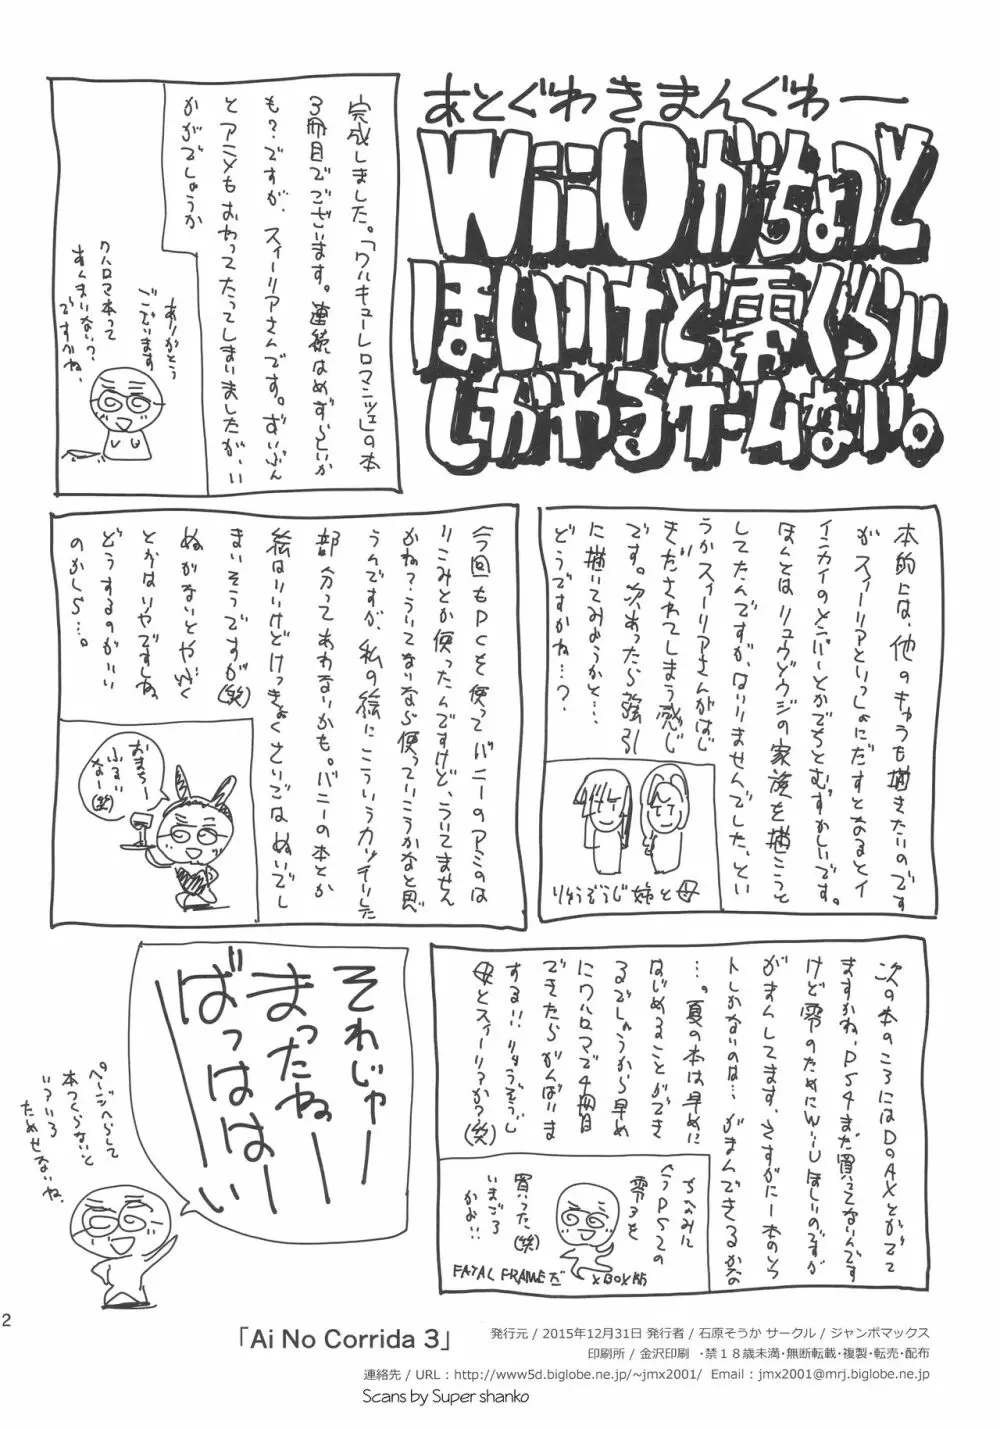 あとぐわきまんぐわー
WiiUがちょっと
ほしいけど零ぐらい
しかやるゲームない。
完成しました。「ワルキューレロマンツェ」の本
3冊目でございます。連続はめずらしいか
も?ですが、スィーリアさんです。ずいぶん
とアニメもおわってたってしまいましたが、い
かがでしょうか
ありがとう
ございます
ワルロマ本って
すんまいない?
ですかね、
本的上は、他のキャラも描きたいのです
がスィーリアといっしょにだすとなるとイ
イニカイのとバーとかでちとむずかしいです。
ほんとはリュウゾウジの家族を描こうと
してたんですが、はいりませんでした、とい
うかスィーリアさんがはじ
きだされてしまう感じ
です。次、あったら強引
に描いてみようかと…、
どうですかね…?
りゅうぞうじ姉と母
今回もPCを使ってバニーのアミのは
りこみとか使ったんですけど、ういてません
かね?ういてないなら使っていこうかなと思
うんですが、私の絵にこういうカッチリした
部分ってあわないかも。バニーの本とか
絵はいいけどけっきょくさいごはぬいでし
まいそうですが(笑)
ぬがないとやぶく
とかはいやですしね。
どうするのがいい
のかしら…。
おまえー
ふるい
なー(笑)
次の本のころにはDOAXとかでて
ますかね、PS4まだ買ってないんです
けど零のためにWiiUほしいのですが
がまんしてます、さすがに1本のソフ
トしかないのは…がまんできるかな
…。夏の本は早めに
はじめることができ
るでしょうから早め
にワルロマで4冊目
できたらがんばりま
する!!りゅうぞうじ
母とスィーリアか?(笑)
ちなみに
今ごろPS2の
零3を
買った、(笑)
いまごろ
かよ!!
FATAL FRAMEだ
XBOX版
それじゃー
まったねー
ばっははーい
ページへらして
本つくらないと
いろいろ
ためせないね、
2
「Ai No Corrida 3」
発行元 / 2015年12月31日 発行者 / 石原そうか サークル / ジャンボマックス
印刷所 / 金沢印刷 ・禁18歳未満・無断転載・複製・転売・配布
連絡先 / URL : http://www5d.biglobe.ne.jp/~jmx2001/ Email : jmx2001@mrj.biglobe.ne.jp
Scans by Super shanko